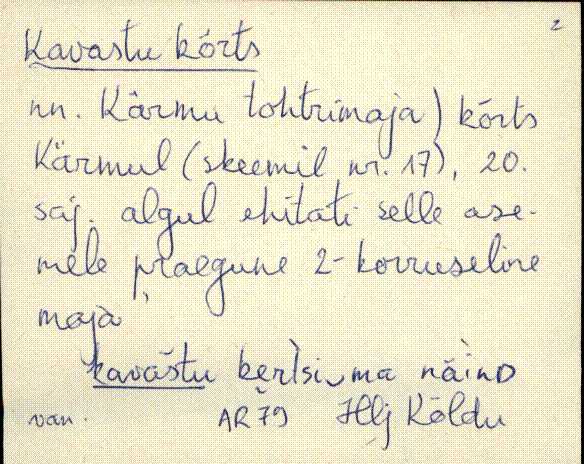 2
Kavastu kõrts
nn. Kärmu tohtrimaja) kõrts
Kärmul (skeemil nr. 17), 20.
saj. algul ehitati selle ase-
mele praegune 2-korruseline
maja
kavastu kertsi ma näinD
van. AR79 Hlj Kõldu